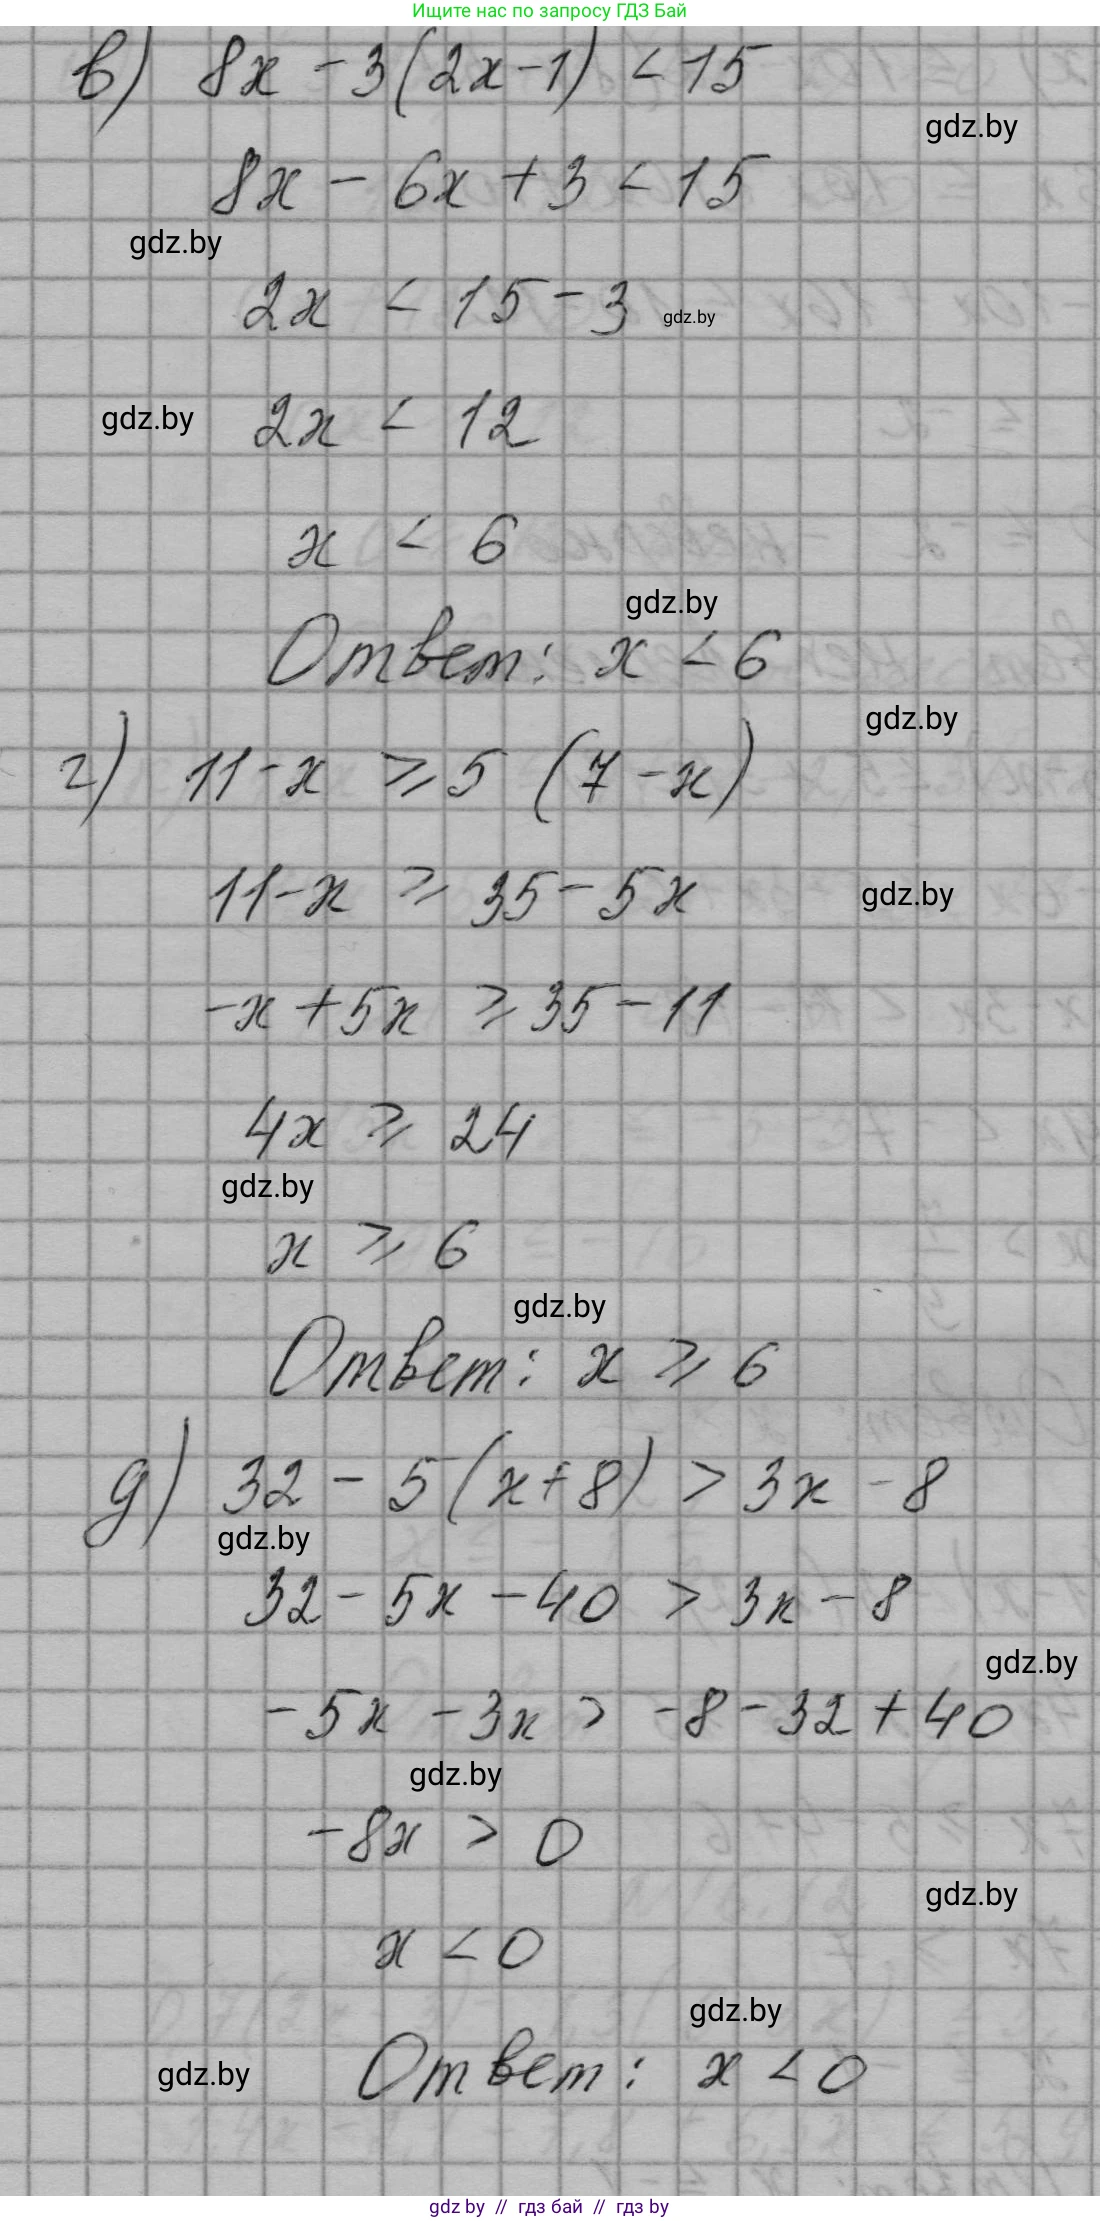 Ищите нас по запросу ГДЗ Бай
в) 8x - 3(2x-1) < 15
gdz.by
8x - 6x + 3 < 15
gdz.by
2x < 15 - 3 gdz.by
gdz.by 2x < 12
x < 6
gdz.by
Ответ: x < 6
gdz.by
г) 11-x ⩾ 5 (7-x)
11-x ⩾ 35-5x gdz.by
-x+5x ⩾ 35-11
4x ⩾ 24
gdz.by
x ⩾ 6
gdz.by
Ответ: x ⩾ 6
д) 32 - 5(x+8) > 3x - 8
gdz.by
32 - 5x - 40 > 3x - 8
gdz.by
-5x - 3x > -8 - 32 + 40
gdz.by
-8x > 0
gdz.by
x < 0
gdz.by
gdz.by Ответ: x < 0
gdz by // гдз бай // гдз by